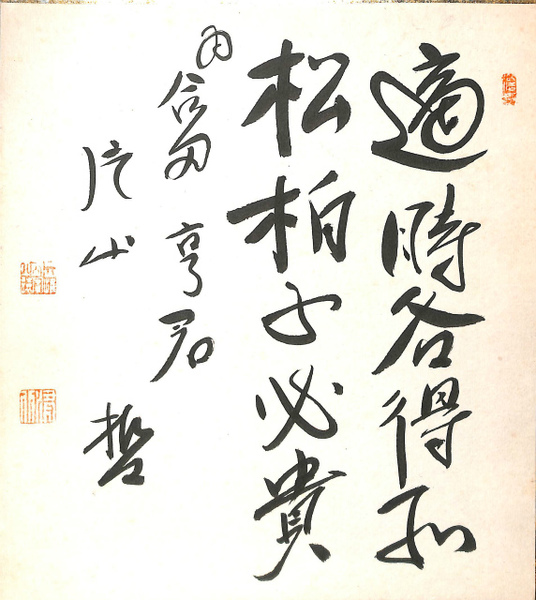 適時各得所
松柏不必貴
為合田亨君
片山哲